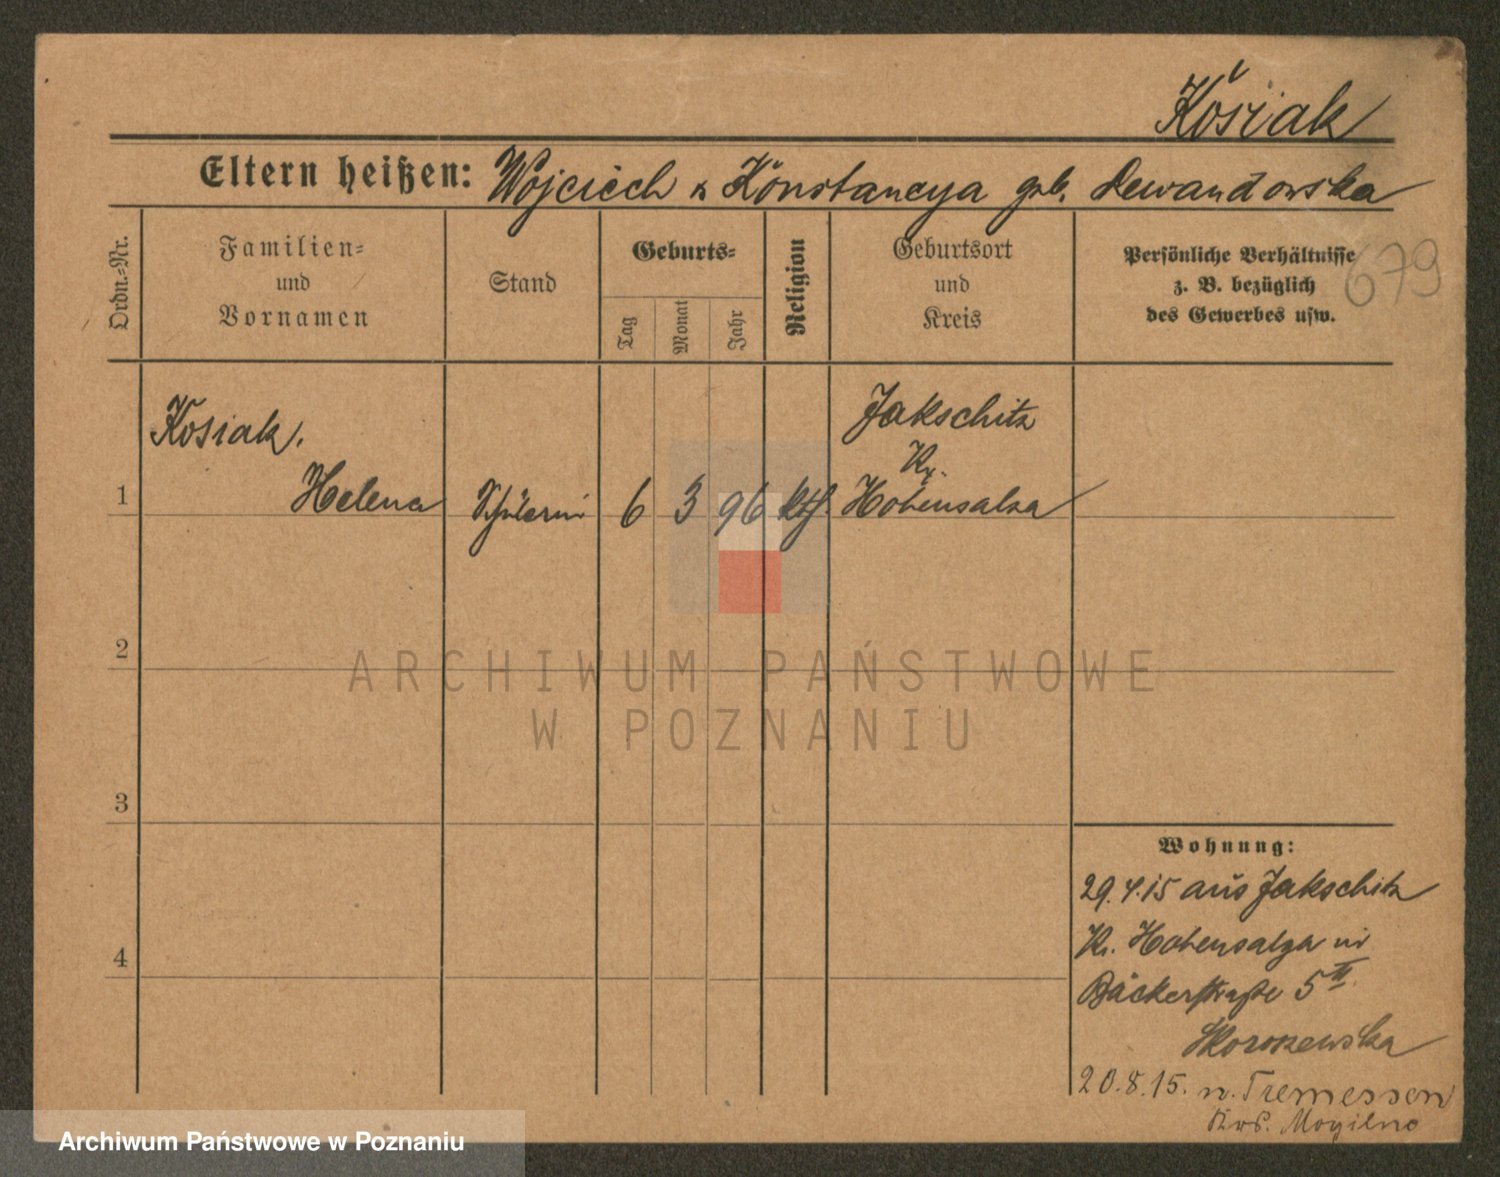 Kosiak
Eltern heißen: Wojciech u Konstancya geb. Lewandowska
Ordn.-Nr.
Familien-
und
Vornamen
Stand
Geburts-
Tag
Monat
Jahr
Religion
Geburtsort
und
Kreis
Persönliche Verhältnisse
z. B. bezüglich
des Gewerbes usw.
679
1
Kosiak,
Helena
Schülerin
6
3
96
kth
Jakschitz
Kr.
Hohensalza
2
3
4
ARCHIWUM PAŃSTWOWE
W POZNANIU
Wohnung:
29.4.15 aus Jakschitz
Kr. Hohensalza in
Bäckerstraße 5 II
Skoroszewska
20.8.15. n. Tremessen
Krs. Mogilno
Archiwum Państwowe w Poznaniu